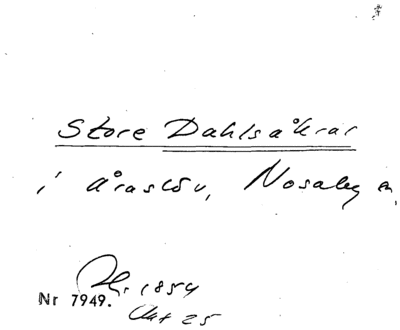 Store Dahlsåkrar
i Åraslöv, Nosaby sn.
1854
Nr 7949. Akt 25